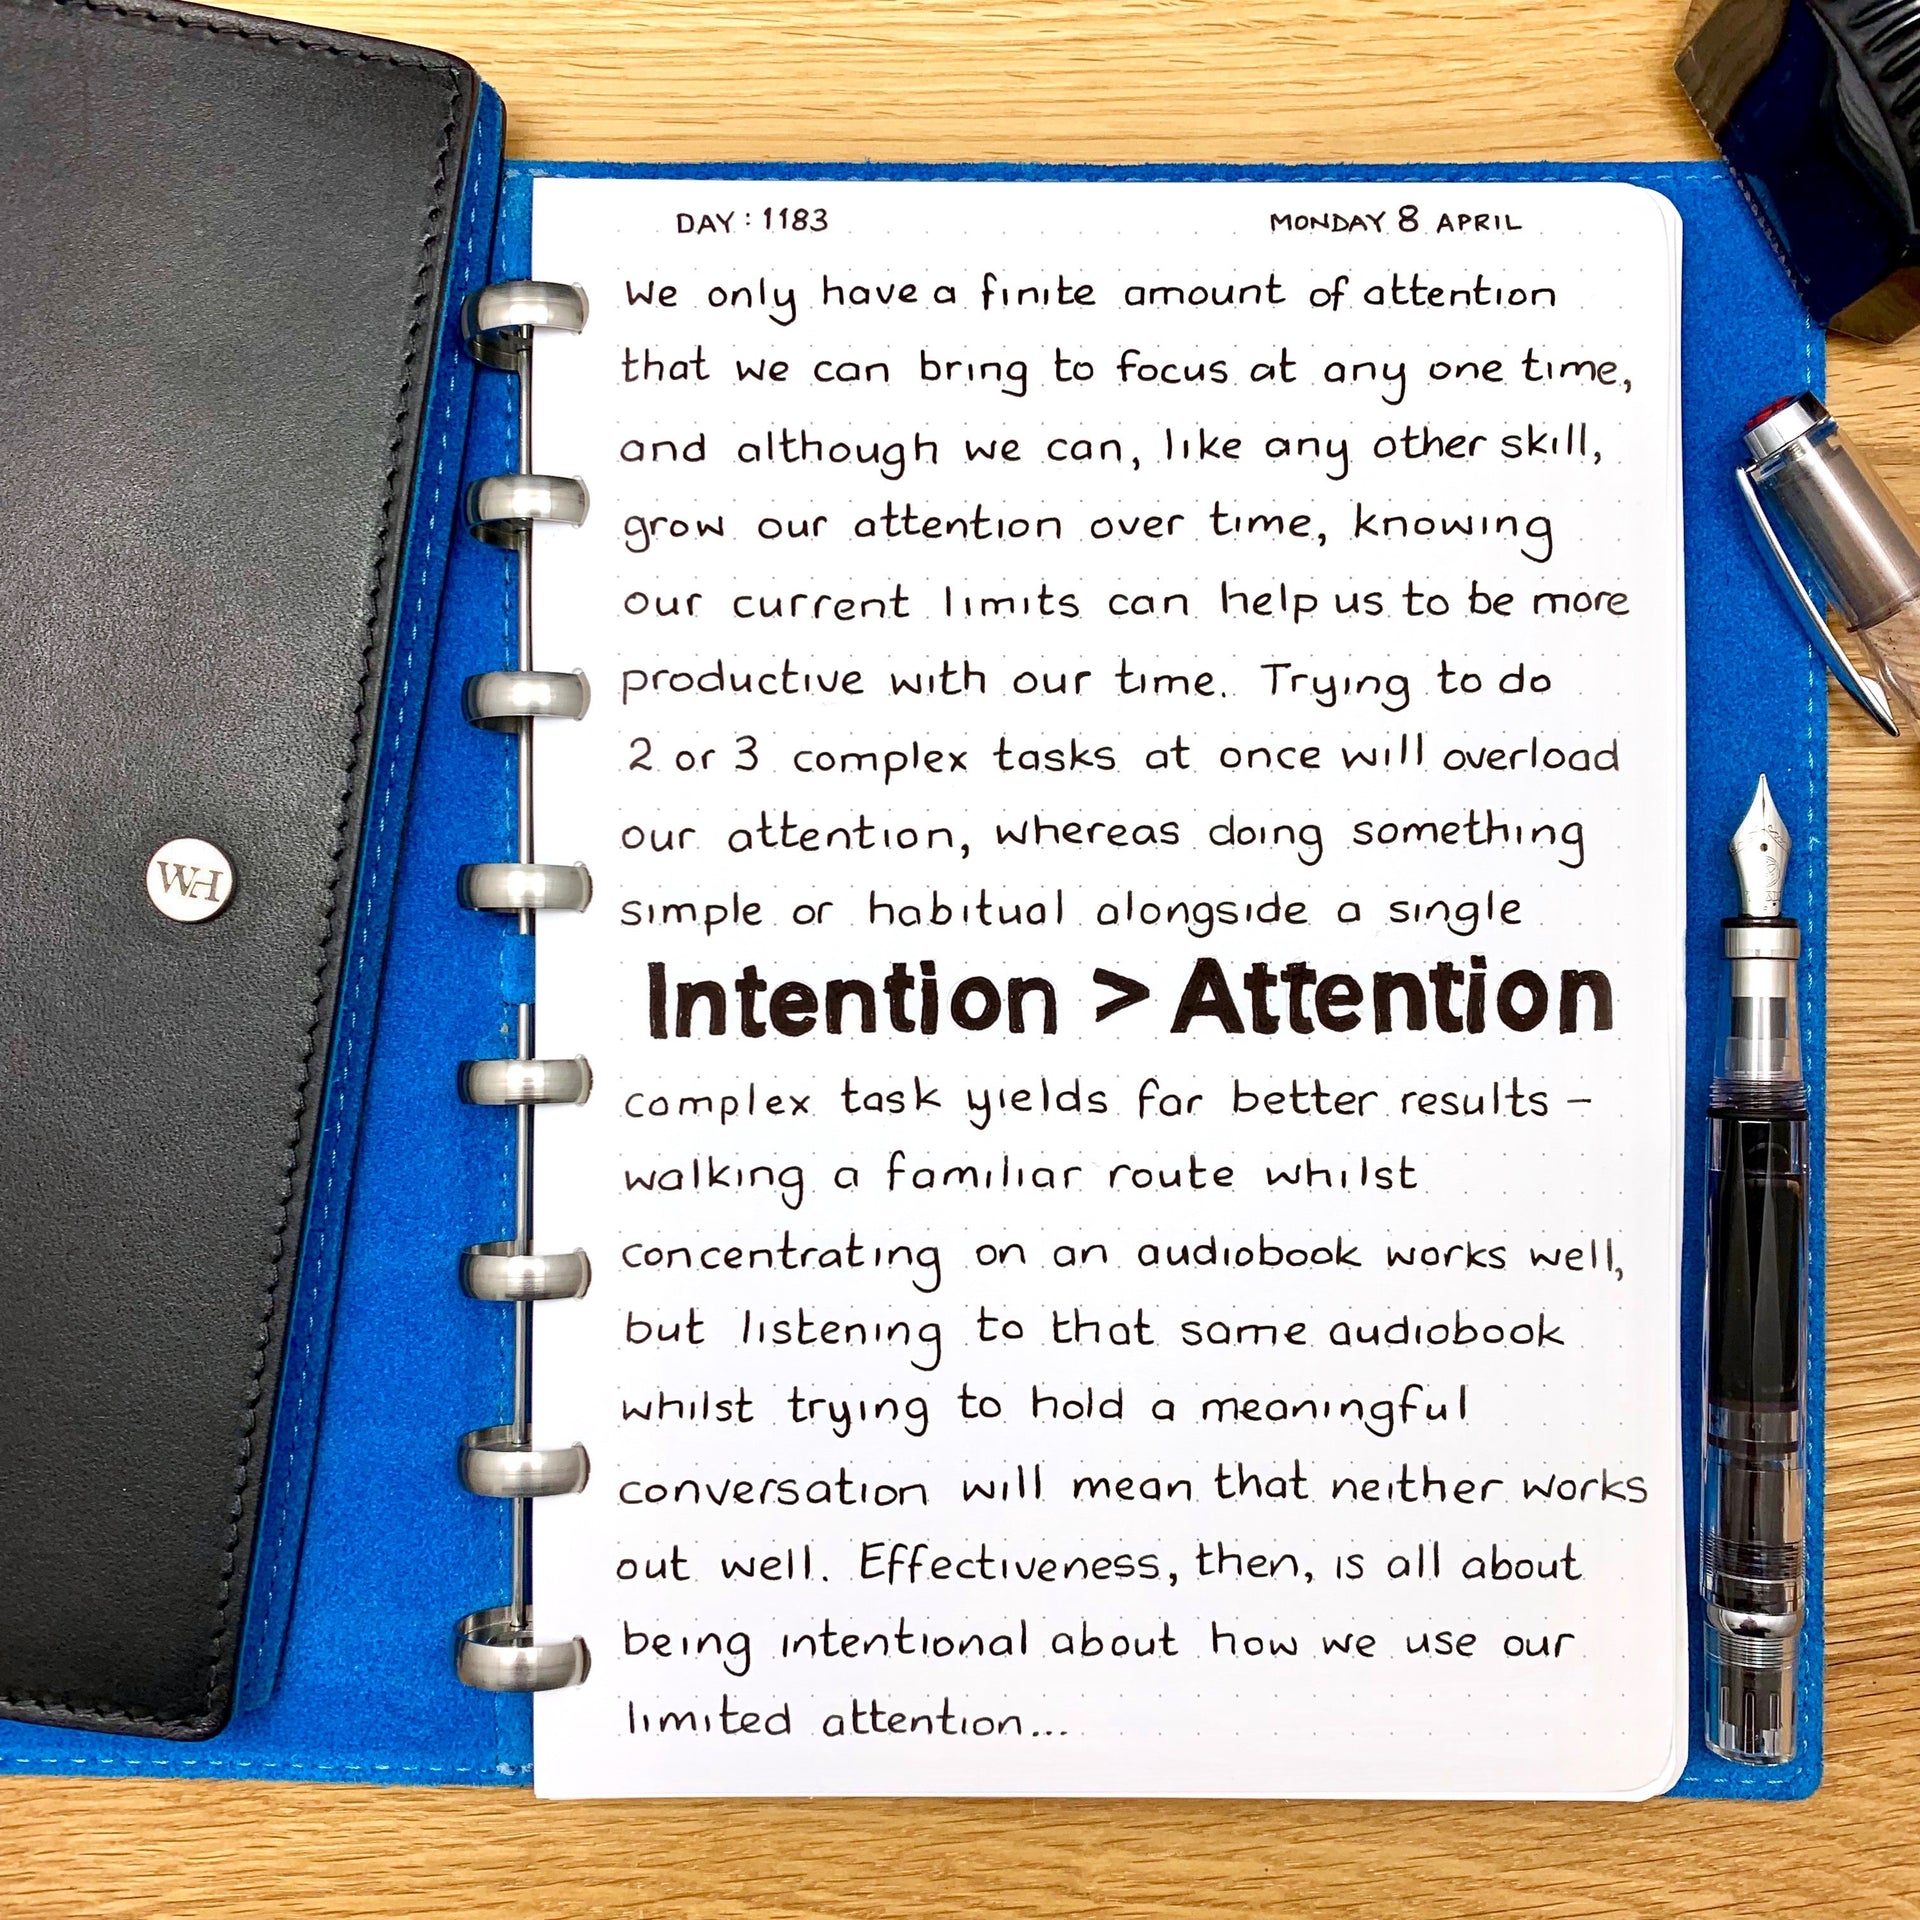 DAY : 1183
MONDAY 8 APRIL
We only have a finite amount of attention
that we can bring to focus at any one time,
and although we can, like any other skill,
grow our attention over time, knowing
our current limits can help us to be more
productive with our time. Trying to do
2 or 3 complex tasks at once will overload
our attention, whereas doing something
simple or habitual alongside a single
Intention > Attention
complex task yields far better results –
walking a familiar route whilst
concentrating on an audiobook works well,
but listening to that same audiobook
whilst trying to hold a meaningful
conversation will mean that neither works
out well. Effectiveness, then, is all about
being intentional about how we use our
limited attention...
WH